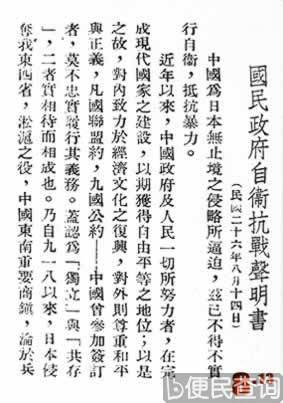 國民政府自衞抗戰聲明書
（民國二十六年八月十四日）
中國爲日本無止境之侵略所逼迫，茲已不得不實
行自衞，抵抗暴力。
近年以來，中國政府及人民一切所努力者，在完
成現代國家之建設，以期獲得自由平等之地位；以是
之故，對內致力於經濟文化之復興，對外則尊重和平
與正義，凡國聯盟約，九國公約——中國曾參加簽訂
者，莫不忠實履行其義務。蓋認爲「獨立」與「共存
」，二者實相待而相成也。乃自九一八以來，日本侵
奪我東四省，淞滬之役，中國東南重要商鎮，淪於兵
b便民省詢